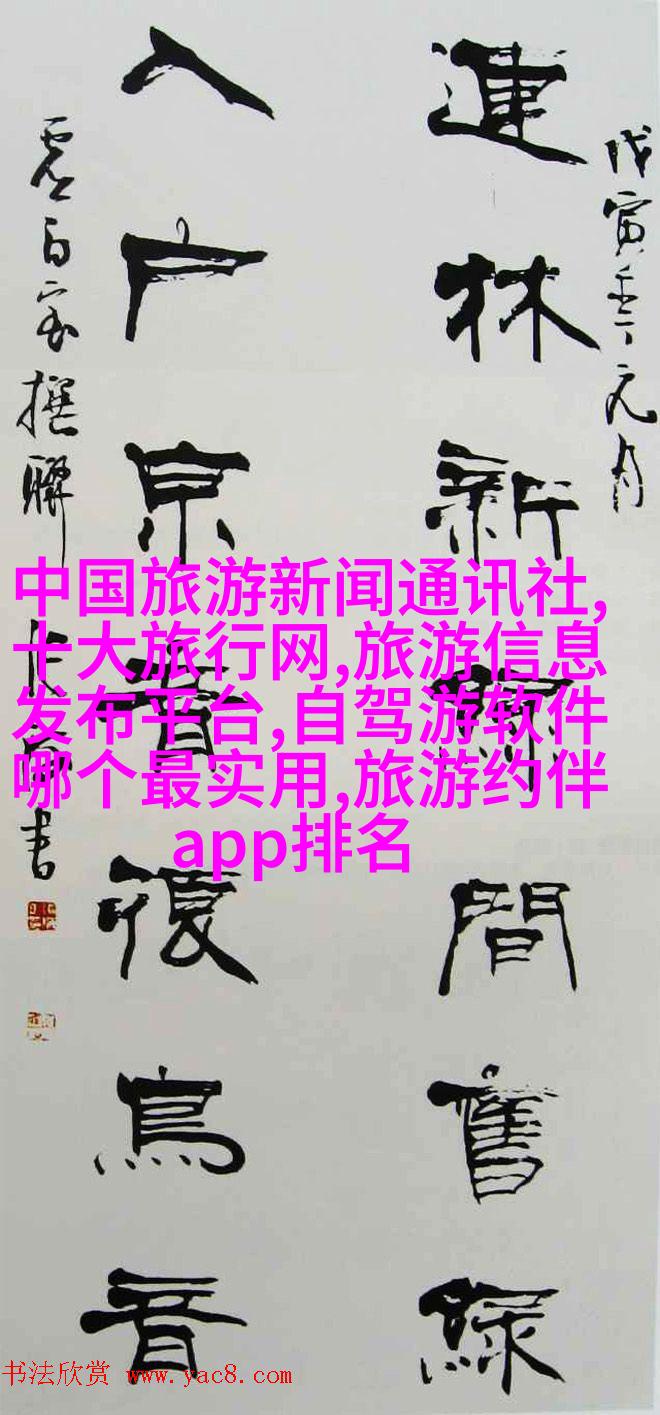 戊寅年元月
連林新綠間舊綠
入户京音鳥音
撰聯
書
中国旅游新闻通讯社,
十大旅行网,旅游信息
发布平台,自驾游软件
哪个最实用,旅游约伴
app排名
书法欣赏 www.yac8.com